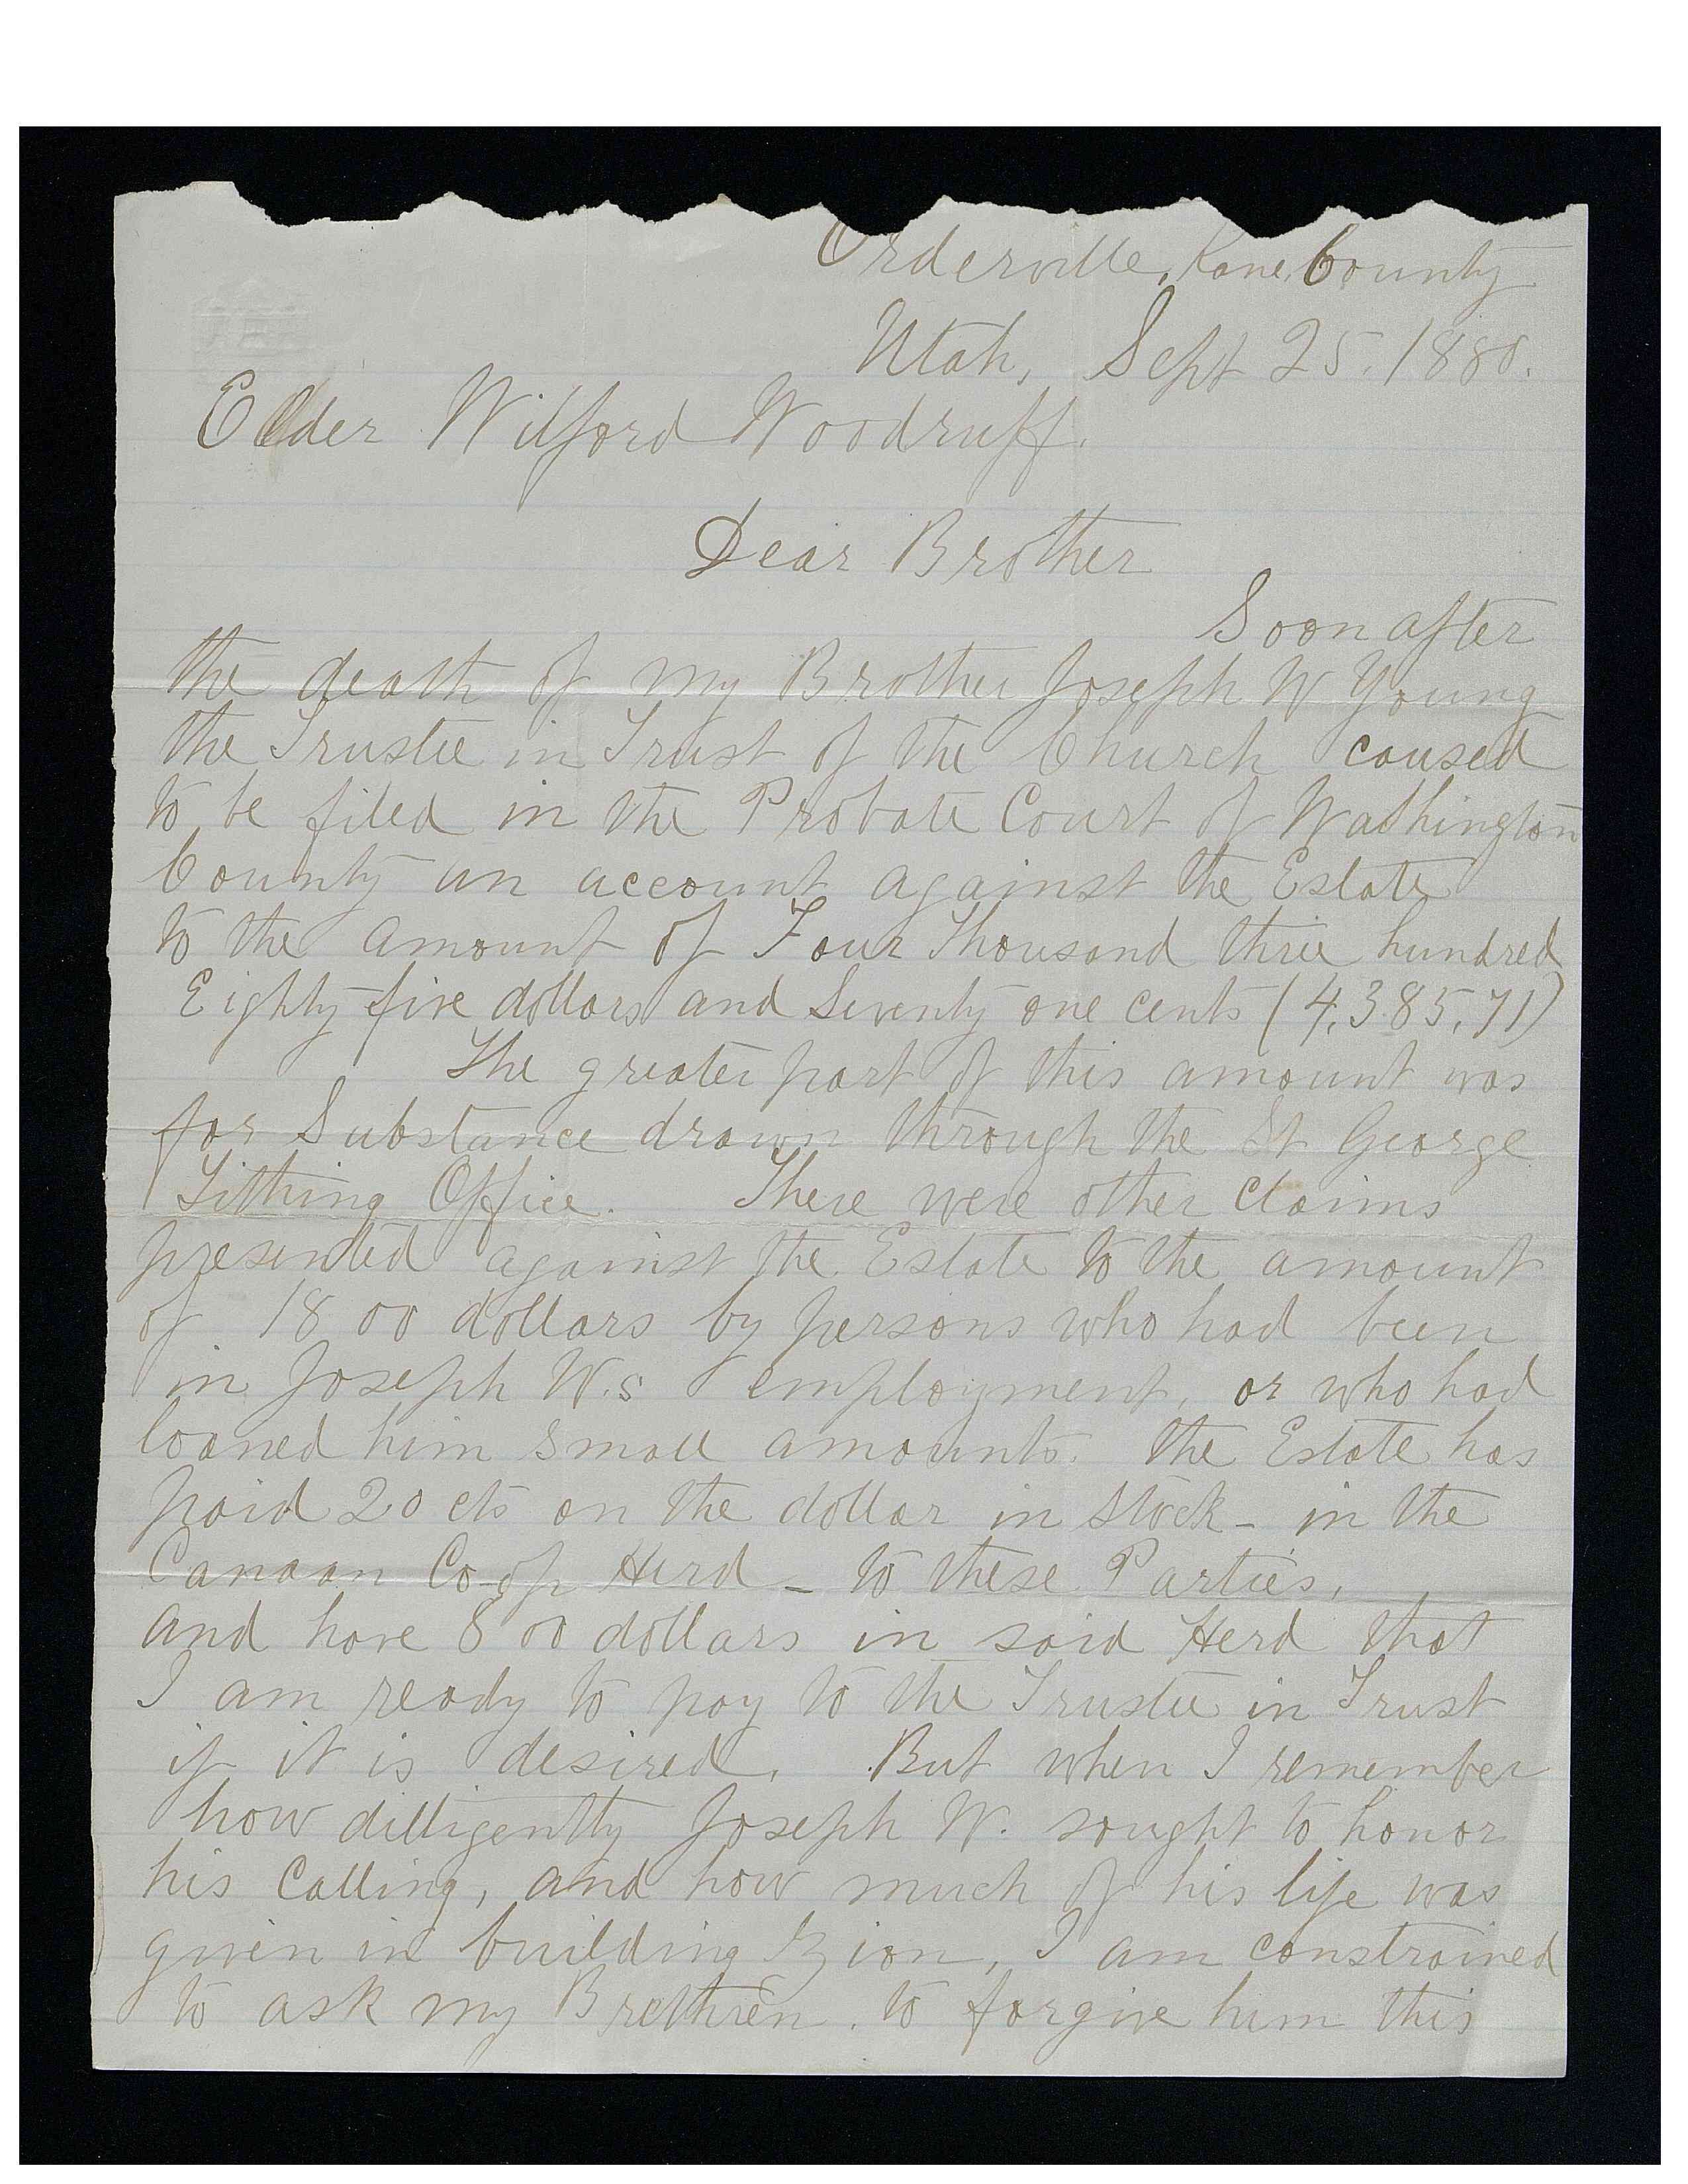 Orderville, Kane, County
Utah, Sept 25. 1880.
Elder Wilford Woodruff.
Dear Brother
Soon after
the death of my Brother Joseph W Young
the Trustee in Trust of the Church caused
to be filed in the Probate Court of Washington
County an account against the Estate
to the amount of Four Thousand three hundred
Eighty five dollars and Seventy one cents (4,385,71)
The greater part of this amount was
for Substance drawn through the St George
Tithing Office. There were other claims
presented against the Estate to the amount
of 1800 dollars by persons who had been
in Joseph W.s employment, or who had
loaned him small amounts. The Estate has
paid 20 cts on the dollar in Stock - in the
Canaan Co-op Herd - to these Parties,
and have 800 dollars in said Herd that
I am ready to pay to the Trustee in Trust
if it is desired. But when I remember
how dilligently Joseph W. sought to honor
his Calling, and how much of his life was
given in building Zion, I am constrained
to ask my Brethren. to forgive him this